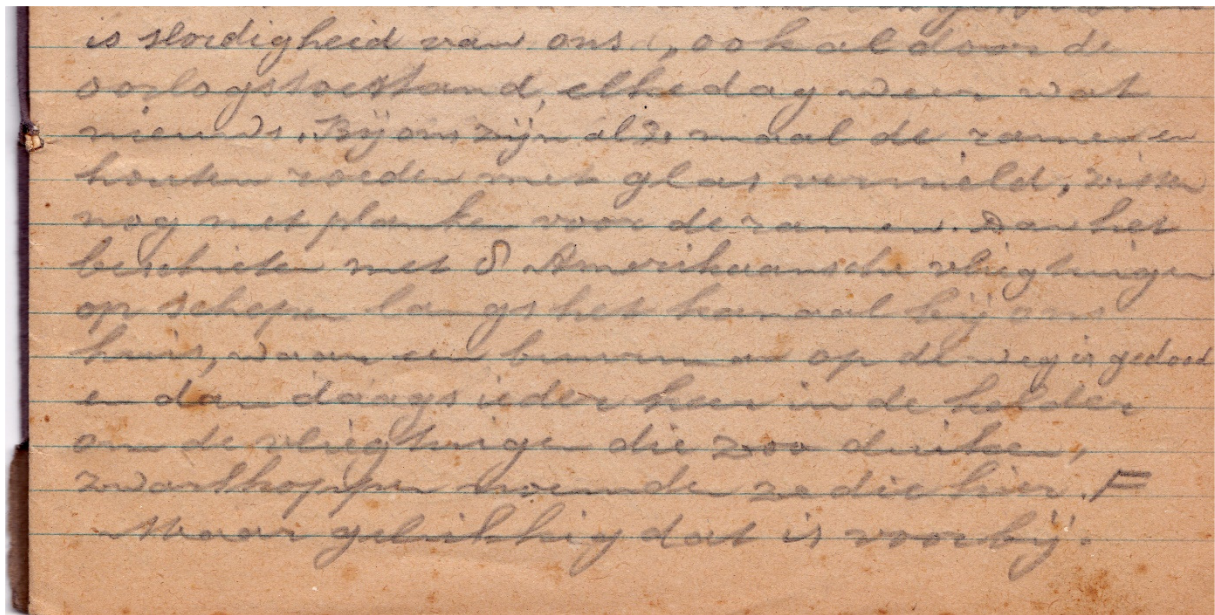 is slordigheid van ons, ook al door de
oorlogstoestand, elke dag weer wat
nieuws. Bij ons zijn al 2 maal de ramen en
houten roeden met glas vernield, zitten
nog met planke voor de ramen. Dan het
beschieten met 8 Amerikaansche vliegtuigen
op schepen langs het kanaal bij ons
huis, waar een buurman op de weg is gedood
en dan daags ieder keer in de kelder
om de vliegtuigen die zoo duiken,
zwartkoppen noemde ze die hier. F
Maar gelukkig dat is voorbij.